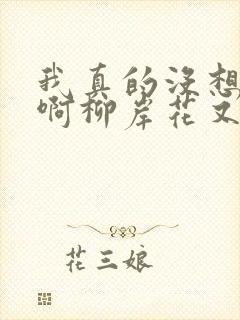 我真的没想
啊柳岸花又
花三娘